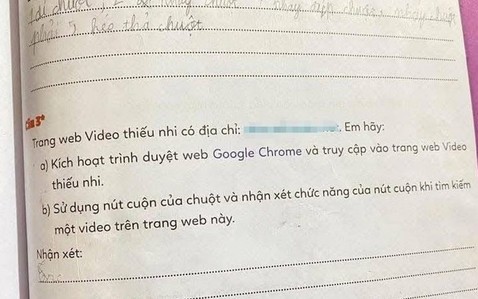 phải, kéo thả chuột
Câu 3*
Trang web Video thiếu nhi có địa chỉ: Em hãy:
a) Kích hoạt trình duyệt web Google Chrome và truy cập vào trang web Video
thiếu nhi.
b) Sử dụng nút cuộn của chuột và nhận xét chức năng của nút cuộn khi tìm kiếm
một video trên trang web này.
Nhận xét: